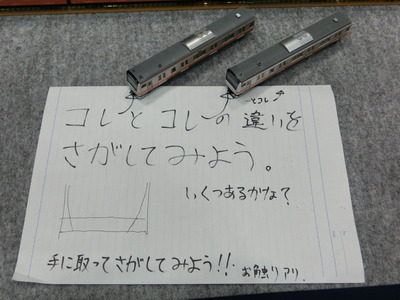 コレとコレの違いを
さがしてみよう。
いくつあるかな?
手に取ってさがしてみよう!!
お触りアリ.